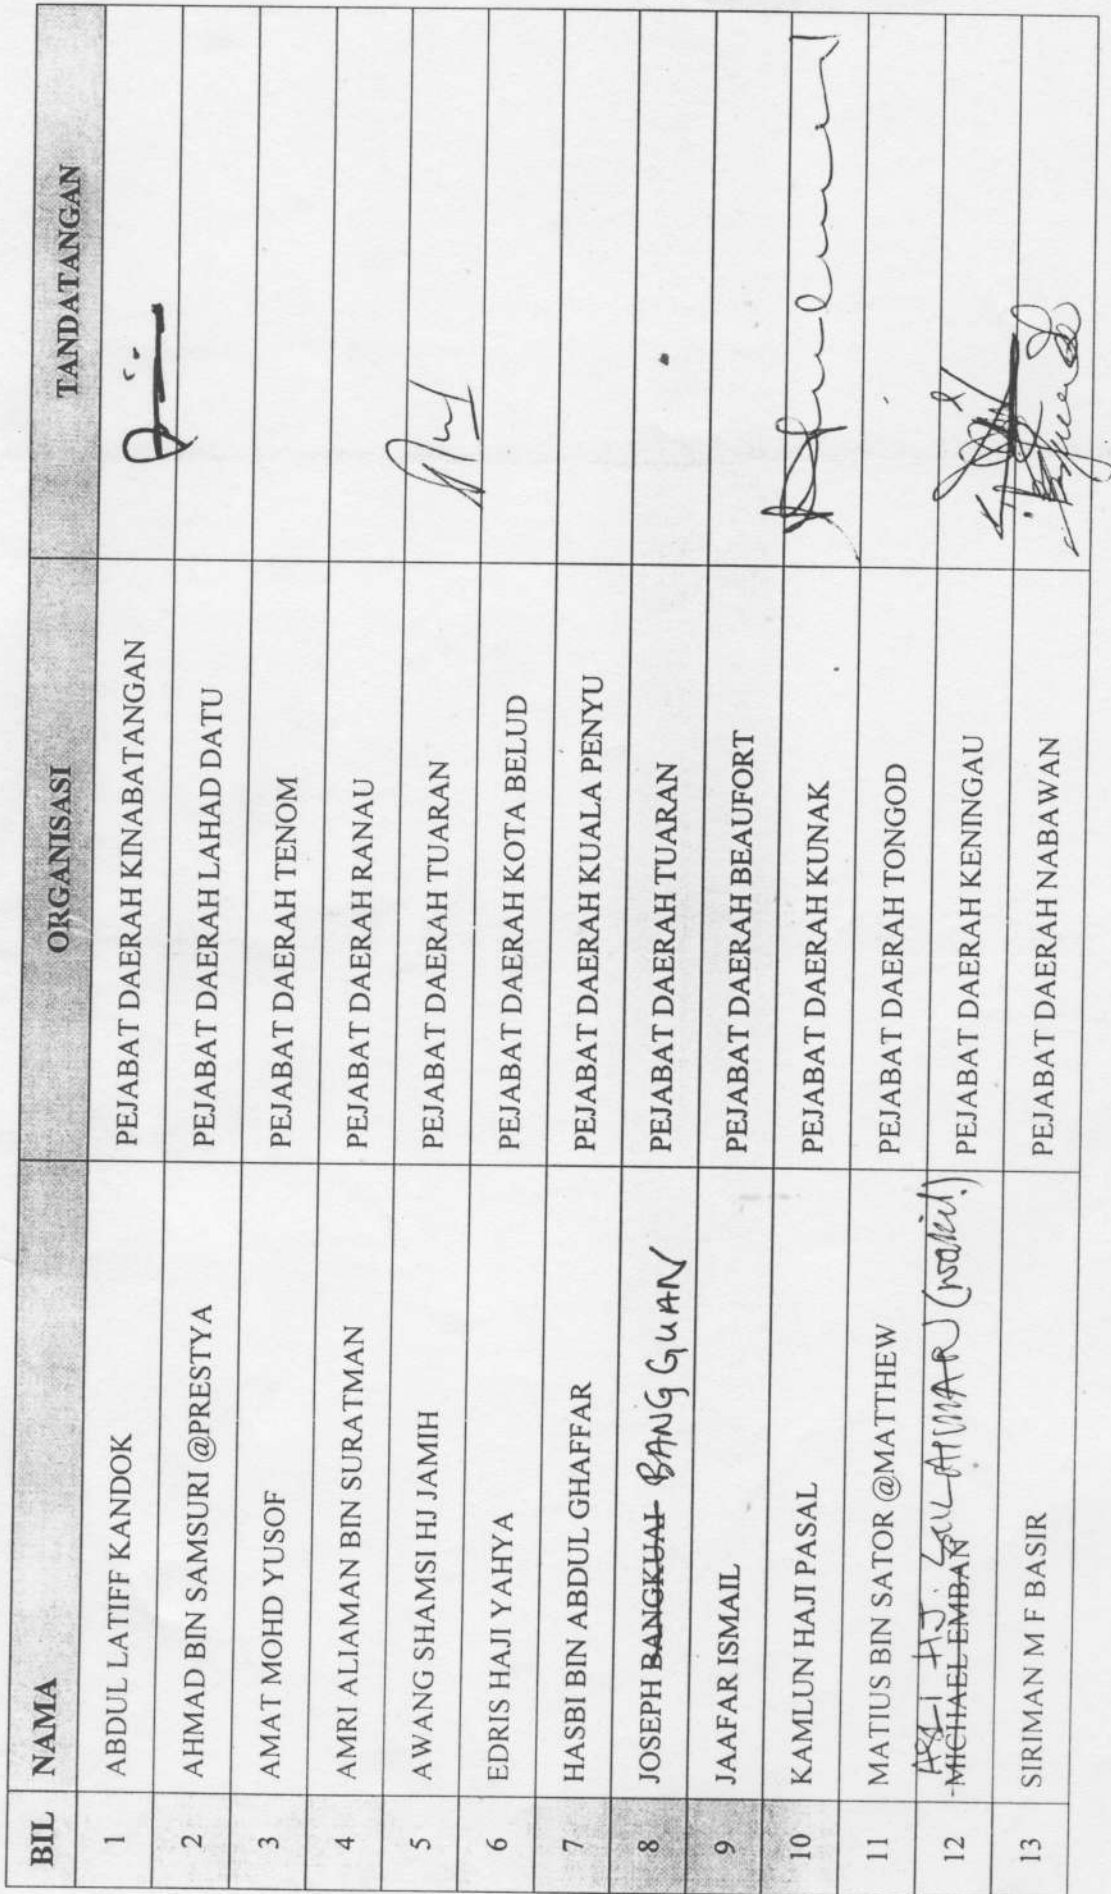 BIL NAMA ORGANISASI TANDATANGAN
1 ABDUL LATIFF KANDOK PEJABAT DAERAH KINABATANGAN
2 AHMAD BIN SAMSURI @PRESTYA PEJABAT DAERAH LAHAD DATU
3 AMAT MOHD YUSOF PEJABAT DAERAH TENOM
4 AMRI ALIAMAN BIN SURATMAN PEJABAT DAERAH RANAU
5 AWANG SHAMSI HJ JAMIH PEJABAT DAERAH TUARAN
6 EDRIS HAJI YAHYA PEJABAT DAERAH KOTA BELUD
7 HASBI BIN ABDUL GHAFFAR PEJABAT DAERAH KUALA PENYU
8 JOSEPH BANGKUAI BANGGUAN PEJABAT DAERAH TUARAN
9 JAAFAR ISMAIL PEJABAT DAERAH BEAUFORT
10 KAMLUN HAJI PASAL PEJABAT DAERAH KUNAK
11 MATIUS BIN SATOR @MATTHEW PEJABAT DAERAH TONGOD
HJ. (wakil)
12 MICHAEL EMBAN PEJABAT DAERAH KENINGAU
13 SIRIMAN M F BASIR PEJABAT DAERAH NABAWAN